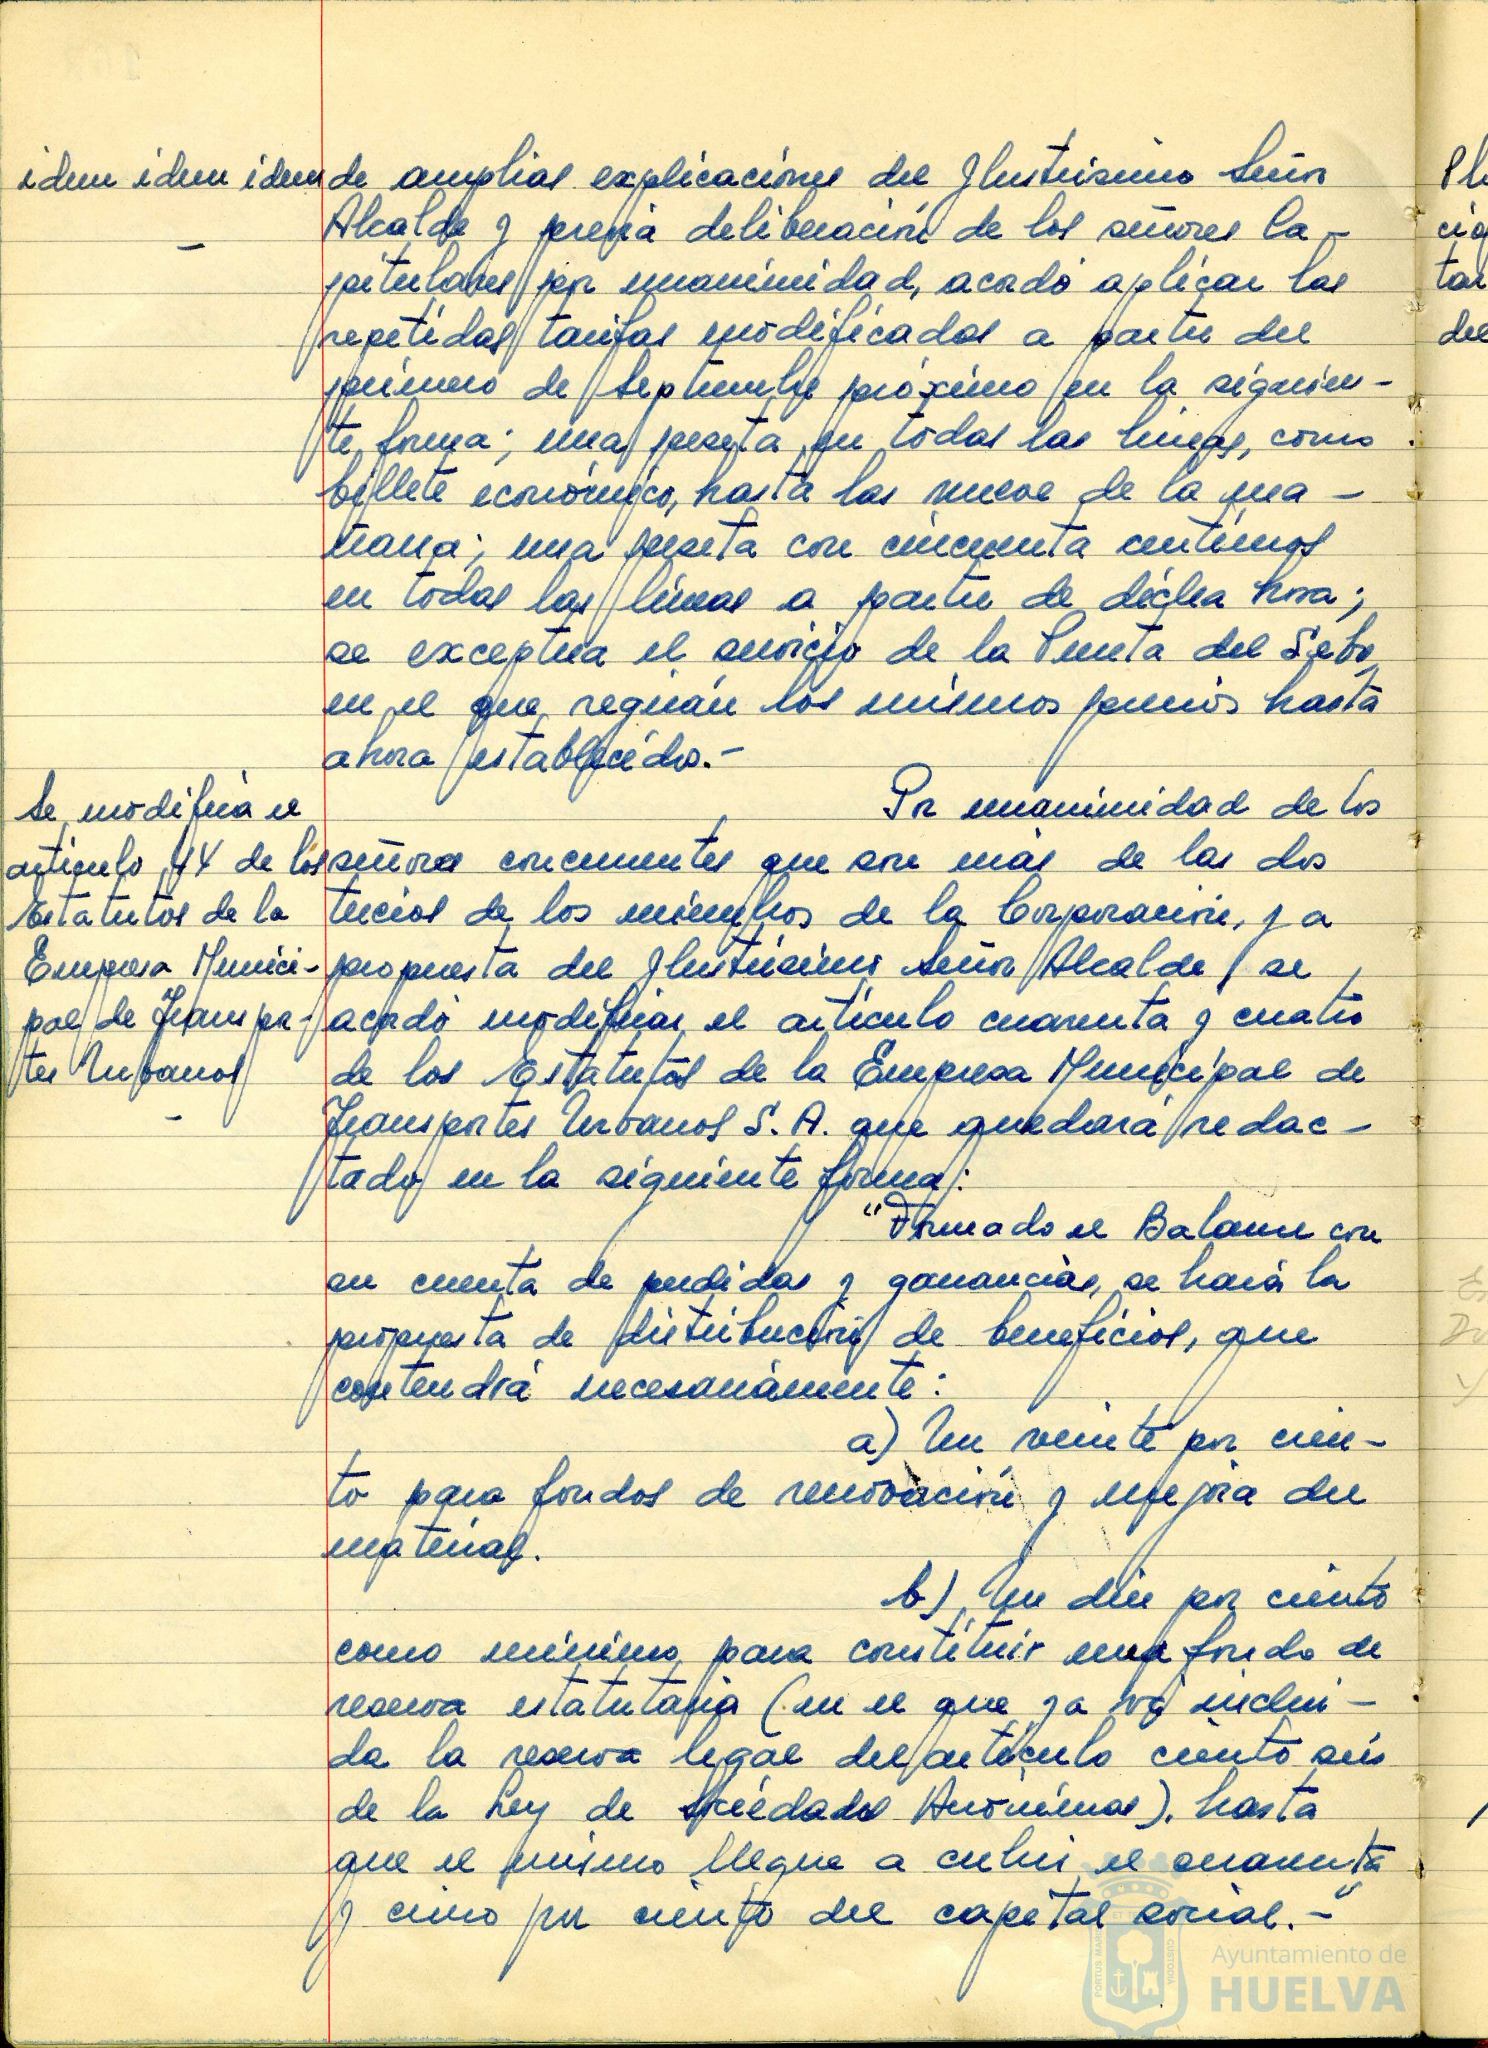 idem idem idem
—
de amplias explicaciones del Ilustrisimo Señor
Alcalde y previa deliberación de los señores Ca-
pitulares por unanimidad, acordó aplicar las
repetidas tarifas modificadas a partir del
primero de Septiembre próximo en la siguien-
te forma; una peseta en todas las lineas, como
billete económico, hasta las nueve de la ma-
ñana; una peseta con cincuenta centimos
en todas las líneas a partir de dicha hora;
se exceptua el servicio de la Punta del Sebo,
en el que regirán los mismos precios hasta
ahora establecidos.-
Se modifica el
articulo 44 de los
Estatutos de la
Empresa Munici-
pal de Transpor-
tes Urbanos
—
Por unanimidad de los
señores concurrentes que son más de las dos
tercios de los miembros de la Corporación, y a
propuesta del Ilustrisimo Señor Alcalde, se
acordó modificar el artículo cuarenta y cuatro
de los Estatutos de la Empresa Municipal de
Transportes Urbanos S. A. que quedará redac-
tado en la siguiente forma:
"Formado el Balance con
su cuenta de perdidas y ganancias, se hará la
propuesta de distribución de beneficios, que
contendrá necesariamente:
a) Un veinte por cien-
to para fondos de renovación y mejora del
material.
b) Un diez por ciento
como mínimo para constituir una fondo de
reserva estatutaria (en el que ya vá inclui-
da la reserva legal del artículo ciento seis
de la Ley de Sociedades Anónimas), hasta
que el mismo llegue a cubrir el cuarenta
y cinco por ciento del capital social.-"
Ayuntamiento de
HUELVA